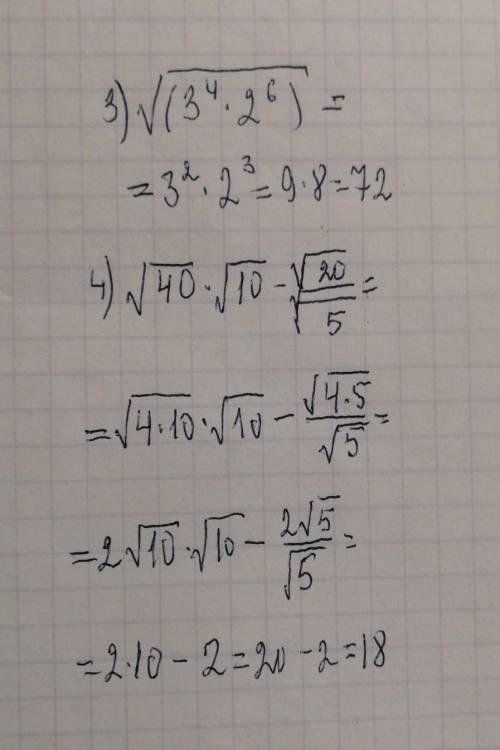 3) √(3⁴ · 2⁶) =
= 3² · 2³ = 9 · 8 = 72
4) √40 · √10 - √20/√5 =
= √4·10 · √10 - √4·5/√5 =
= 2√10 · √10 - 2√5/√5 =
= 2·10 - 2 = 20 - 2 = 18